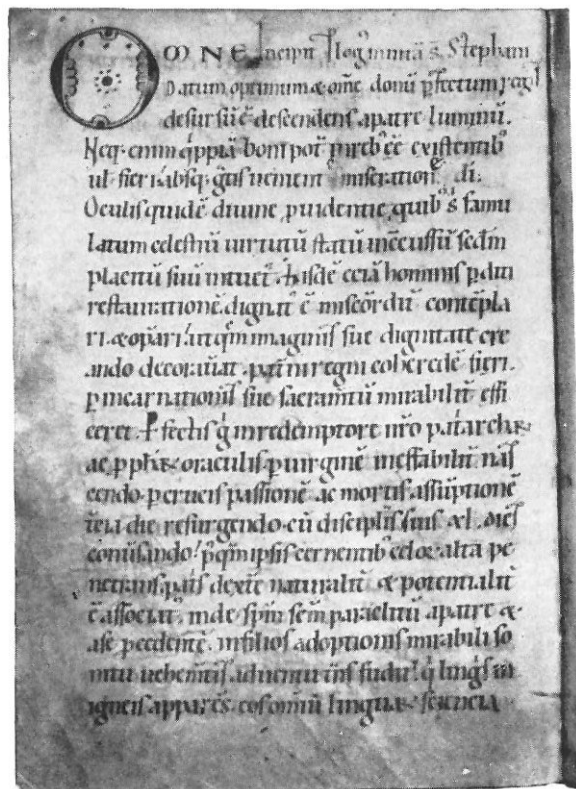 OMNE Incipit Log minā s̄ Stephani
Datum optimum & om̄e donū p̄fectum regis
desursū ē descendens a patre luminū.
Neq; enim q̇ppiā boni pot̄ in reb᷒ eē existentib᷒
ul fieri absq; gt̄is uenient miseration̄e di.
Oculis quidē diuine ꝓuidentie quib᷒ s̄ famu
latum celestiū uirtutū statū inēcussū sedm̄
placitū suū intuet᷑. hisdē ecia hominis ꝑditi
restaurationē dignat᷑ ē miscdr̄dit᷑ contēpla
ri. & oꝑari. ut q̄m imaginis sue dignitate cre
ando decorauat. pat̄ni regni coheredē fieri.
ꝑ incarnationis sue sacramtū mirabilit᷑ effi
ceret. Pfectis ḡ in redemptore nr̄o pat̄archaꝝ
ac ꝓphaꝝ oraculis. ꝑ uirginē ineffabilit᷑ nas
cendo. ꝑ crucis passionē ac mortis assūptionē
t̄cia die resurgendo. cū disciplis suis xl. dies
conūsando. p̄q̄m ipsis cernentib᷒ celoꝝ alta pe
netrans. pat̄s dext̄e naturalit᷑ & potentialit᷑
ē associat᷑. inde sp̄m sc̄m paraclitū a patre &
a se ꝓcedentē. in filios adoptionis mirabili so
nitu uehem̄tis aduentu tn̄sfudit. q̇ linḡis in
igneis appar̄es. eos om̄iū linguaꝝ sciencia